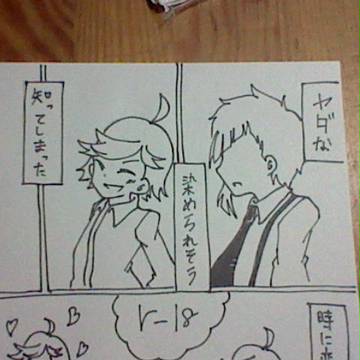 ヤダな
染められそう
知ってしまった
r-18
時に